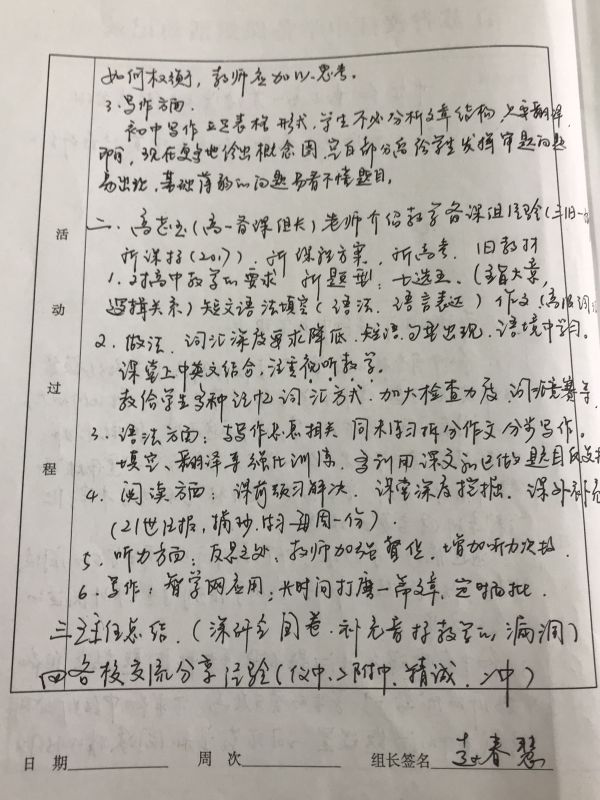 如何权衡，教师应加以思考。
3.写作方面.
初中写作立足表格形式，学生不必分析文章结构，只要翻译
即可，现在更多地给出概念图，空白部分留给学生发挥，审题问题
易出现，基础薄弱的问题易看不懂题目。
二、高老师(高一备课组长)老师介绍教学备课组经验(三旧一
新课标(2017)，新课程方案，新高考，旧教材
1.对高中教学的要求 新题型：七选五，(主旨大意，
逻辑关系) 短文语法填空(语法、语言表达) 作文(高级词汇
2.做法.词汇深度要求降低.短语句型出现，语境中学习。
课堂上中英文结合，注重视听教学。
教给学生多种记忆词汇方式，加大检查力度，词汇竞赛等
3.语法方面：与写作息息相关 周末练习拆分作文分步写作。
填空、翻译等强化训练，多利用课文和已做题目
4.阅读方面：课前预习解决，课堂深度挖掘，课外补充
(21世纪报，摘抄，练习每周一份).
5.听力方面：反思之处，教师加强督促，增加听力次数.
6.写作：智学网应用；长时间打磨一篇文章，定时面批.
三.主任总结.(深研全国卷.补充音标教学的漏洞)
四各校交流分享经验(仪中、附中、精诚、中)
活
动
过
程
日 期 周 次 组长签名 春慧